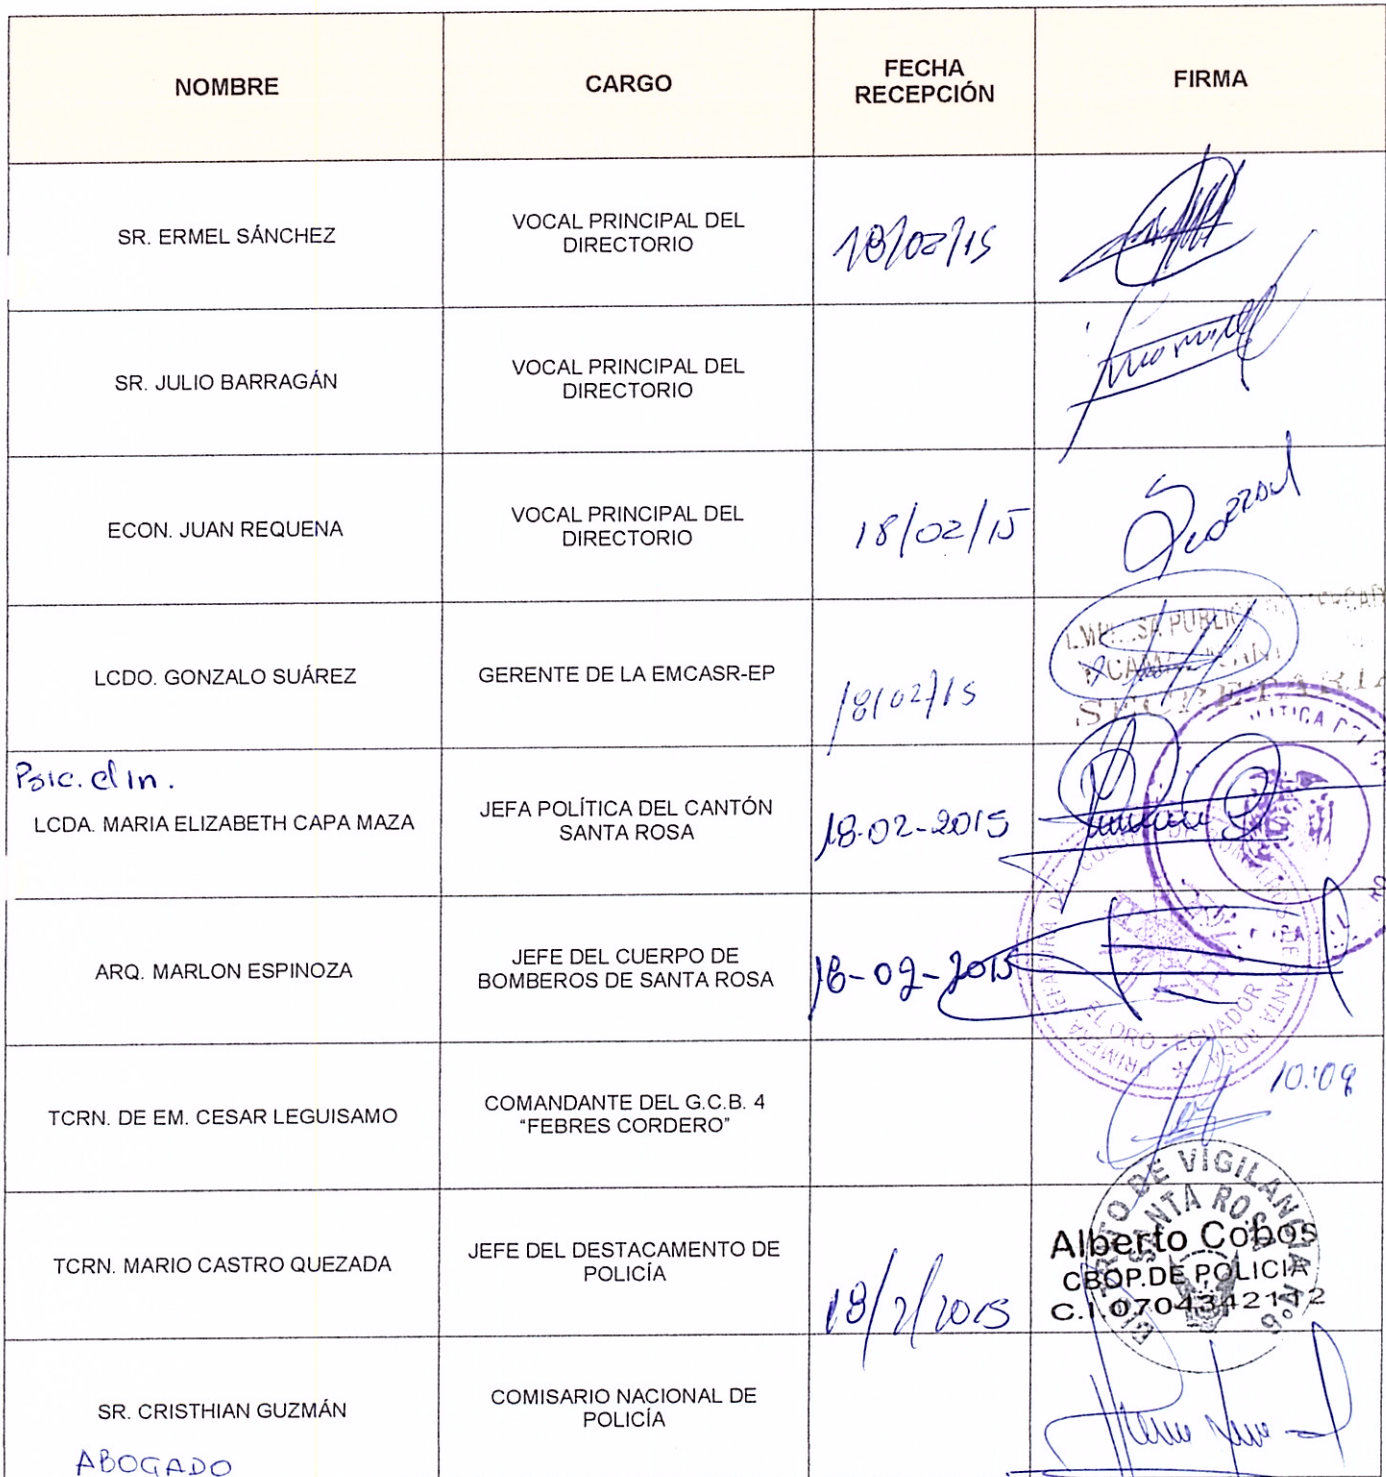 NOMBRE
CARGO
FECHA
RECEPCIÓN
FIRMA
SR. ERMEL SÁNCHEZ
VOCAL PRINCIPAL DEL
DIRECTORIO
18/02/15
SR. JULIO BARRAGÁN
VOCAL PRINCIPAL DEL
DIRECTORIO
ECON. JUAN REQUENA
VOCAL PRINCIPAL DEL
DIRECTORIO
18/02/15
LCDO. GONZALO SUÁREZ
GERENTE DE LA EMCASR-EP
18/02/15
SECRETARIA
Psic. clin.
LCDA. MARIA ELIZABETH CAPA MAZA
JEFA POLÍTICA DEL CANTÓN
SANTA ROSA
18-02-2015
ARQ. MARLON ESPINOZA
JEFE DEL CUERPO DE
BOMBEROS DE SANTA ROSA
18-02-2015
PRIMERA JEFATURA DEL CUERPO DE BOMBEROS DE SANTA ROSA
EL ORO - ECUADOR
TCRN. DE EM. CESAR LEGUISAMO
COMANDANTE DEL G.C.B. 4
"FEBRES CORDERO"
10:09
TCRN. MARIO CASTRO QUEZADA
JEFE DEL DESTACAMENTO DE
POLICÍA
18/2/2015
DE VIGILANCIA Nº 6
SANTA ROSA
Alberto Cobos
CBOP.DE POLICIA
C.I.0704342112
SR. CRISTHIAN GUZMÁN
COMISARIO NACIONAL DE
POLICÍA
ABOGADO